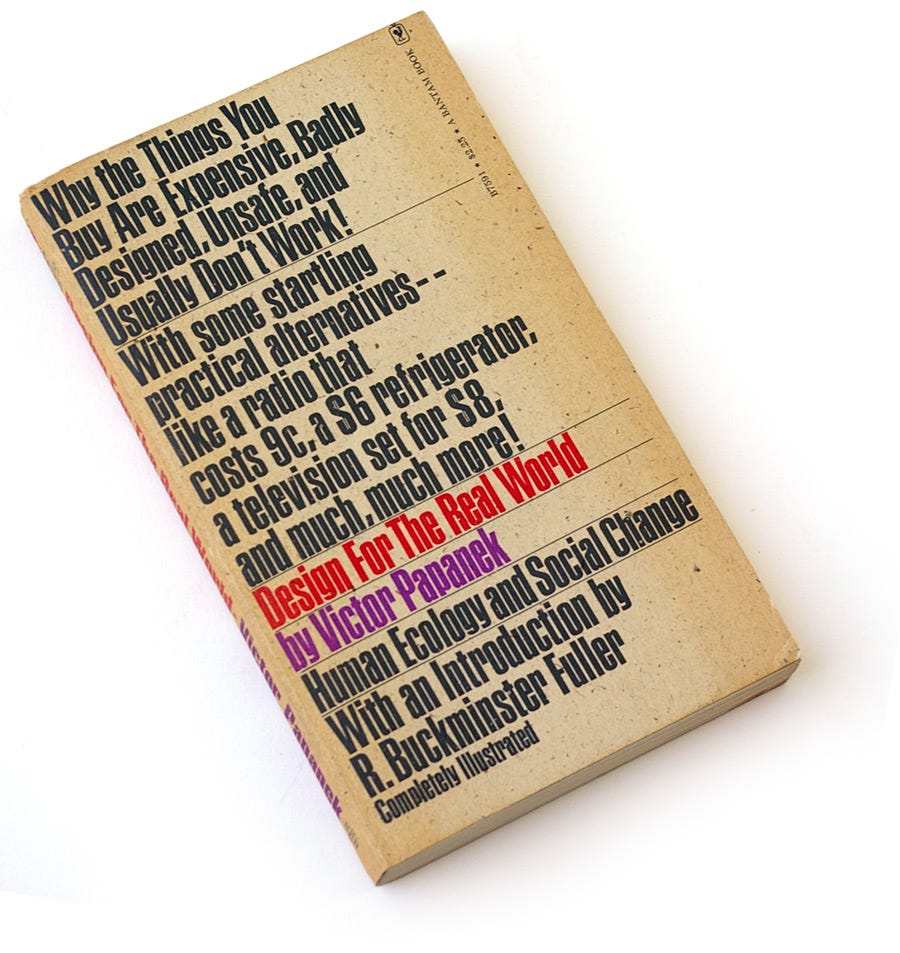 B7591 ★ $2.25 ★ A BANTAM BOOK
Why the Things You
Buy Are Expensive, Badly
Designed, Unsafe, and
Usually Don't Work!
With some startling
practical alternatives--
like a radio that
costs 9c, a $6 refrigerator,
a television set for $8,
and much, much more!
Design For The Real World
by Victor Papanek
Human Ecology and Social Change
With an Introduction by
R. Buckminster Fuller
Completely Illustrated
Design For The Real World Victor Papanek